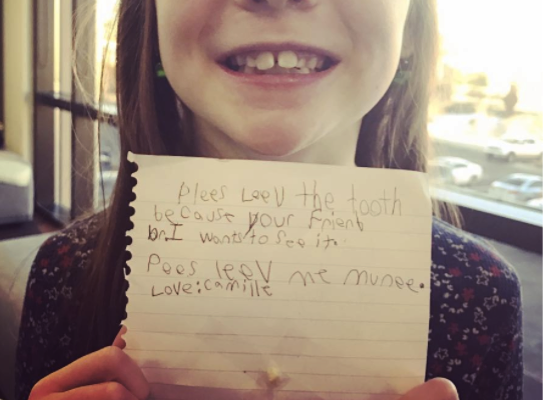 Plees Leev the tooth
because your Frient
brI wants to see it.
Pees leev me munee.
Love: camille